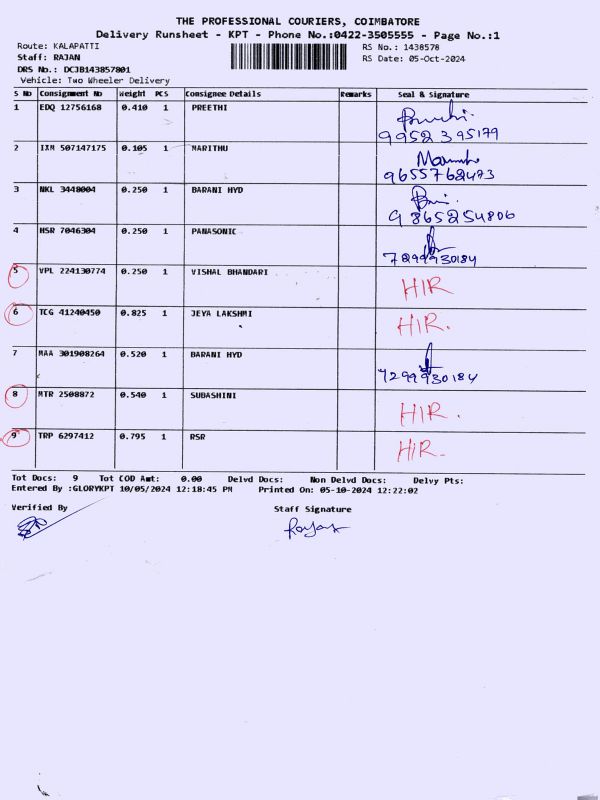 THE PROFESSIONAL COURIERS, COIMBATORE
Delivery Runsheet - KPT - Phone No.:0422-3505555 - Page No.:1
Route: KALAPATTI RS No.: 1438578
Staff: RAJAN RS Date: 05-Oct-2024
DRS No.: DCJB143857801
Vehicle: Two Wheeler Delivery
S No Consignment No Weight PCS Consignee Details Remarks Seal & Signature
1 EDQ 12756168 0.410 1 PREETHI
9952395179
2 IXM 507147175 0.105 1 MARITHU
9655762473
3 NKL 3448004 0.250 1 BARANI HYD
9865254806
4 HSR 7046304 0.250 1 PANASONIC
7299930184
5 VPL 224130774 0.250 1 VISHAL BHANDARI HIR
6 TCG 41240450 0.825 1 JEYA LAKSHMI HIR.
7 MAA 301908264 0.520 1 BARANI HYD
7299930184
8 MTR 2508872 0.540 1 SUBASHINI HIR.
9 TRP 6297412 0.795 1 RSR HIR.
Tot Docs: 9 Tot COD Amt: 0.00 Delvd Docs: Non Delvd Docs: Delvy Pts:
Entered By :GLORYKPT 10/05/2024 12:18:45 PM Printed On: 05-10-2024 12:22:02
Verified By Staff Signature